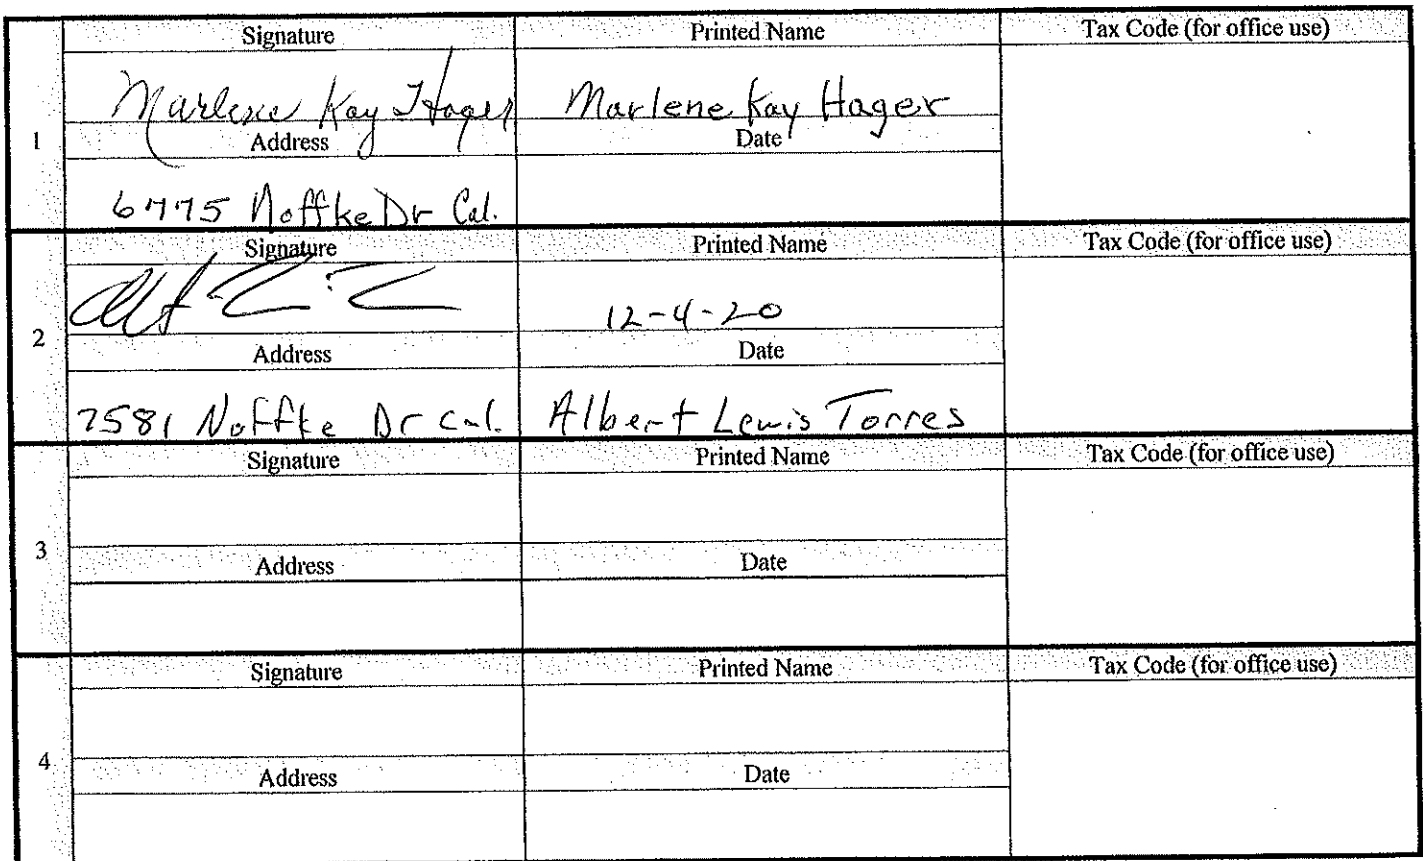 Signature Printed Name Tax Code (for office use)
Marlene Kay Hager Marlene Kay Hager
1 Address Date
6775 Noffke Dr Cal.
Signature Printed Name Tax Code (for office use)
12-4-20
2 Address Date
7581 Noffke Dr Cal. Albert Lewis Torres
Signature Printed Name Tax Code (for office use)
3 Address Date
Signature Printed Name Tax Code (for office use)
4 Address Date